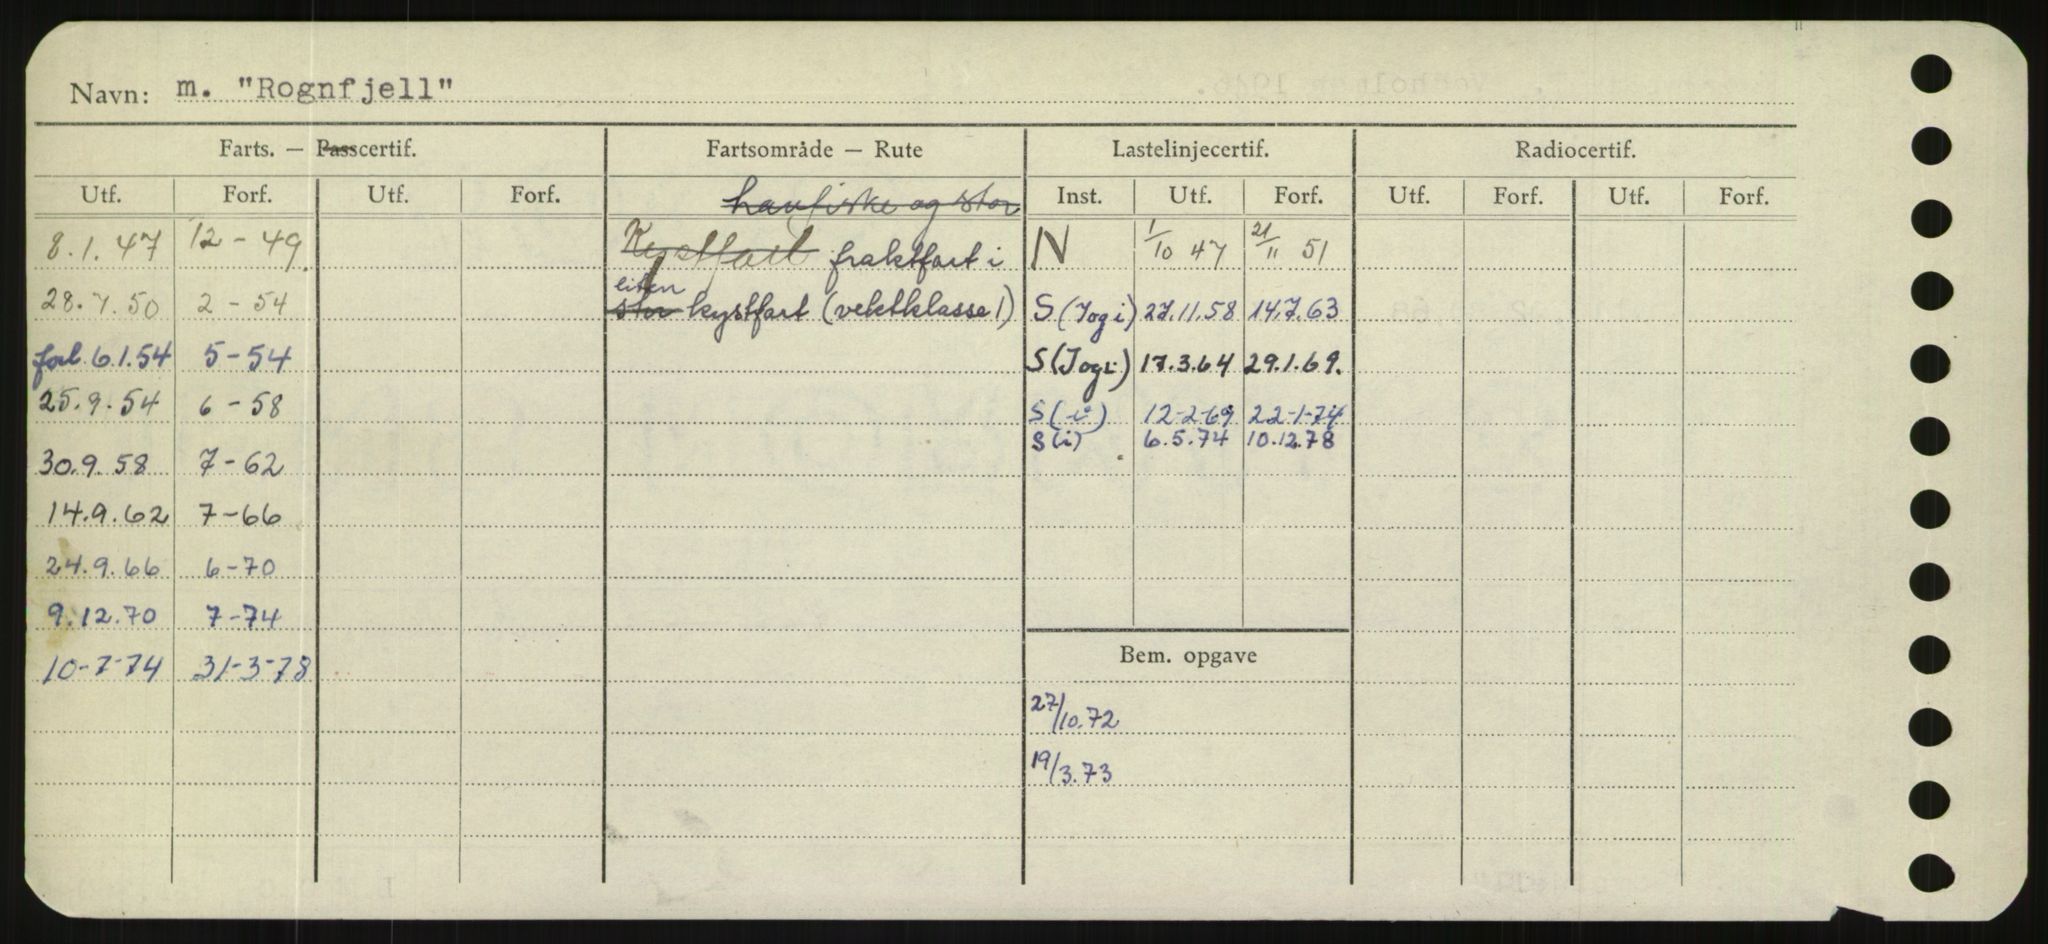 Navn: m. "Rognfjell"
Farts. — Passcertif. Fartsområde — Rute Lastelinjecertif. Radiocertif.
Utf. Forf. Utf. Forf. havfiske og stor Inst. Utf. Forf. Utf. Forf. Utf. Forf.
8.1.47 12-49. Kystfart fraktfart i N 1/10 47 21/11 51
liten
28.7.50 2-54 stor kystfart (vektklasse 1) S (Jog i) 27.11.58 14.7.63
forl. 6.1.54 5-54 S (Jog i) 17.3.64 29.1.69.
25.9.54 6-58 S (i) 12-2-69 22-1-74
S (i) 6.5.74 10.12.78
30.9.58 7-62
14.9.62 7-66
24.9.66 6-70
9.12.70 7-74
Bem. opgave
10-7-74 31-3-78
27/10.72
19/3.73